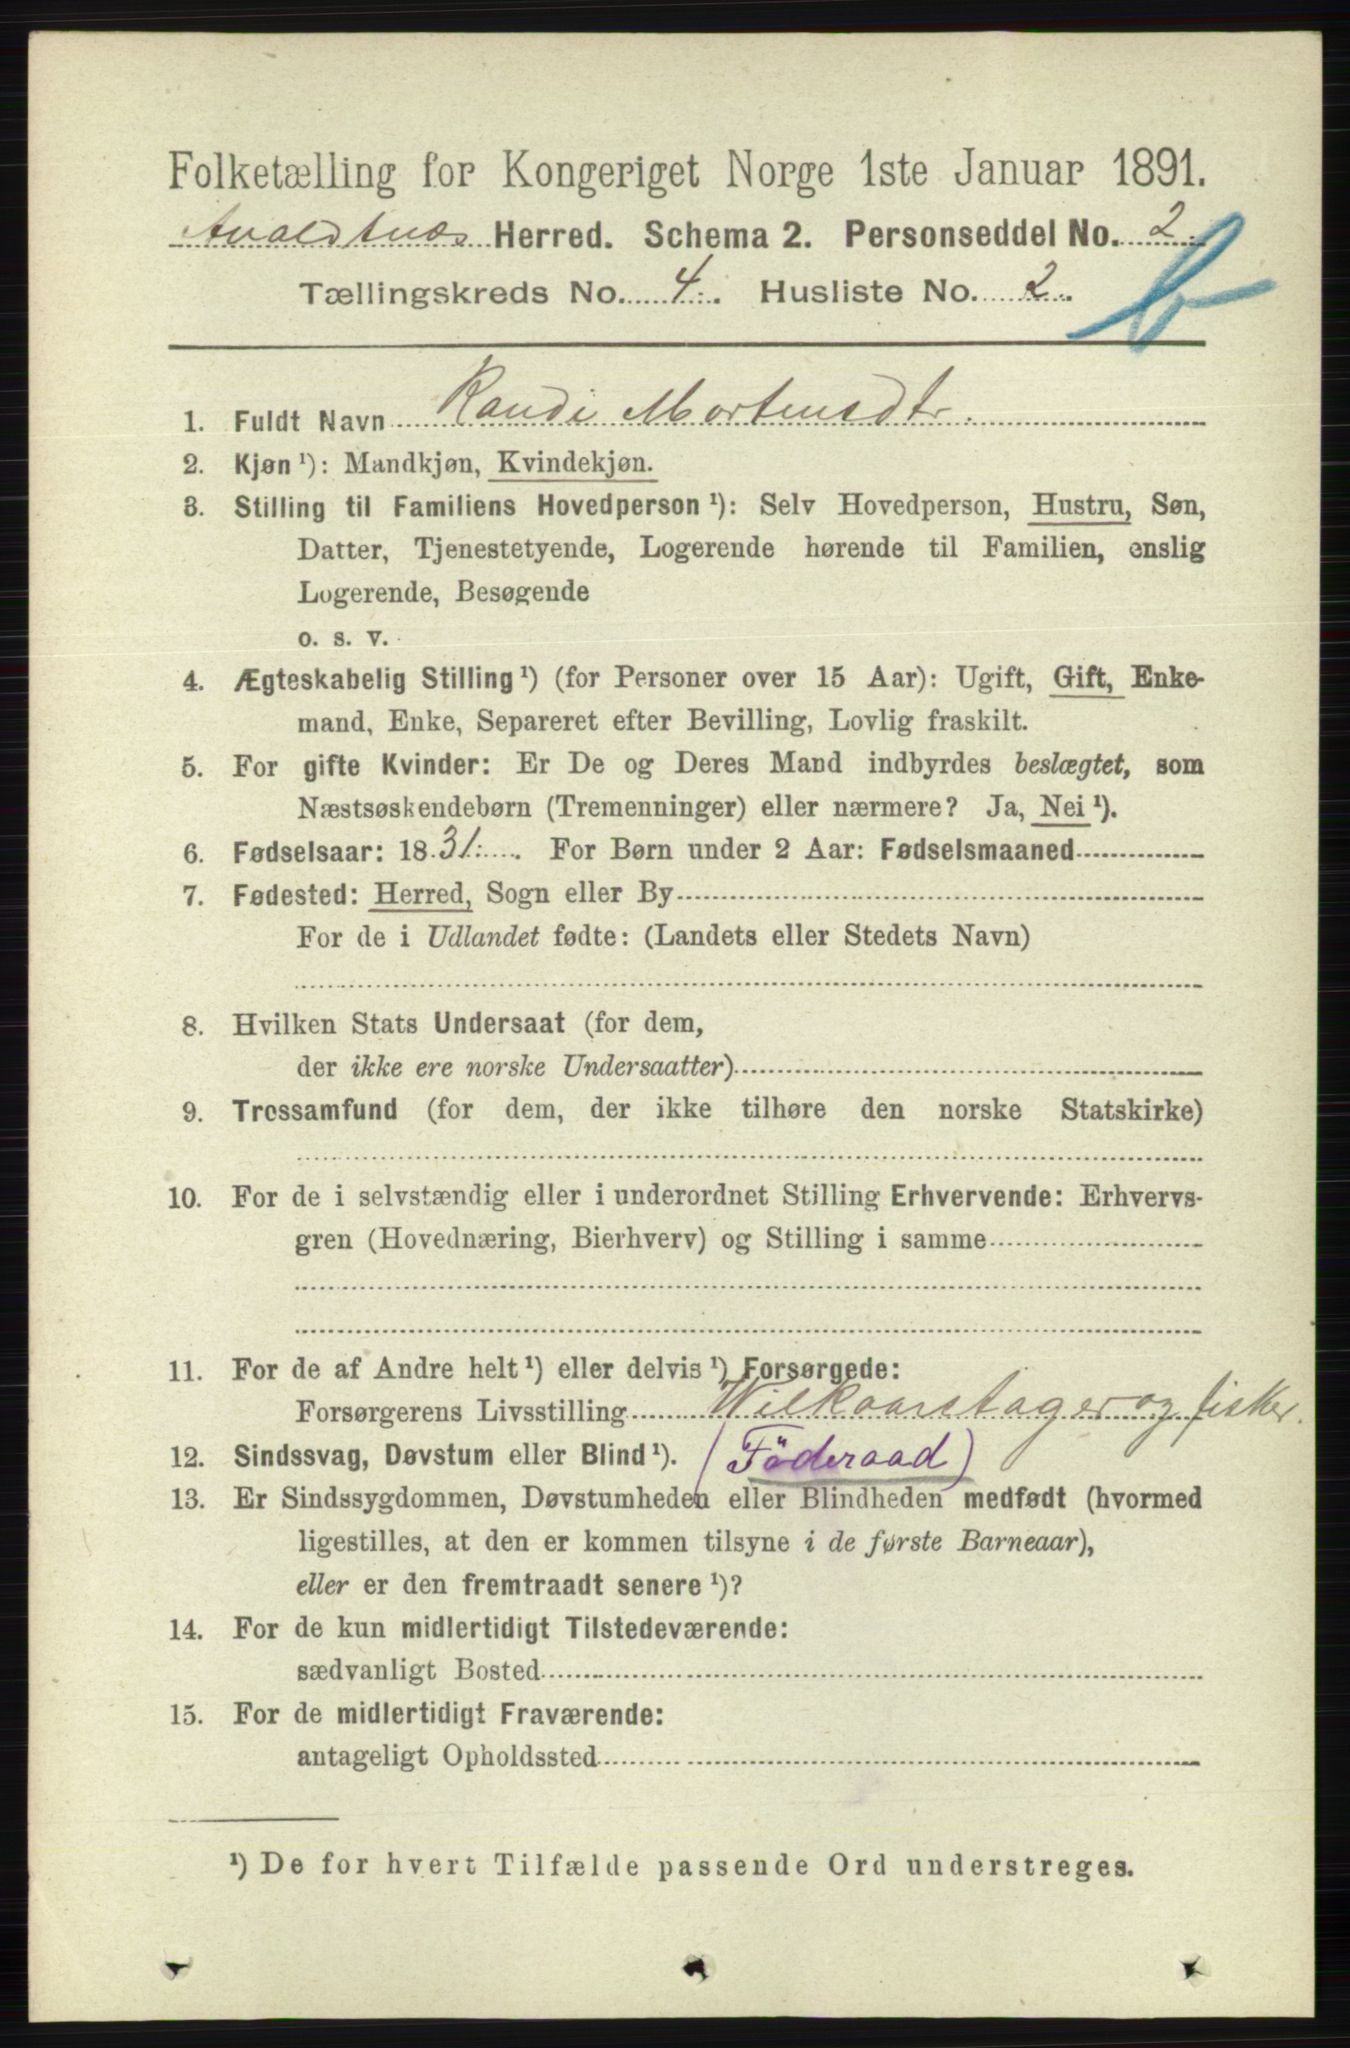 Folketælling for Kongeriget Norge 1ste Januar 1891.
Avaldsnæs Herred. Schema 2. Personseddel No. 2.
Tællingskreds No. 4. Husliste No. 2.
b
1. Fuldt Navn Randi Mortensdtr.
2. Kjøn ¹): Mandkjøn, Kvindekjøn.
3. Stilling til Familiens Hovedperson ¹): Selv Hovedperson, Hustru, Søn,
Datter, Tjenestetyende, Logerende hørende til Familien, enslig
Logerende, Besøgende
o. s. v.
4. Ægteskabelig Stilling ¹) (for Personer over 15 Aar): Ugift, Gift, Enke-
mand, Enke, Separeret efter Bevilling, Lovlig fraskilt.
5. For gifte Kvinder: Er De og Deres Mand indbyrdes beslægtet, som
Næstsøskendebørn (Tremenninger) eller nærmere? Ja, Nei ¹).
6. Fødselsaar: 1831. For Børn under 2 Aar: Fødselsmaaned
7. Fødested: Herred, Sogn eller By
For de i Udlandet fødte: (Landets eller Stedets Navn)
8. Hvilken Stats Undersaat (for dem,
der ikke ere norske Undersaatter)
9. Trossamfund (for dem, der ikke tilhøre den norske Statskirke)
10. For de i selvstændig eller i underordnet Stilling Erhvervende: Erhvervs-
gren (Hovednæring, Bierhverv) og Stilling i samme
11. For de af Andre helt ¹) eller delvis ¹) Forsørgede:
Forsørgerens Livsstilling Wilkaarstager og fisker.
12. Sindssvag, Døvstum eller Blind ¹). (Föderaad)
13. Er Sindssygdommen, Døvstumheden eller Blindheden medfødt (hvormed
ligestilles, at den er kommen tilsyne i de første Barneaar),
eller er den fremtraadt senere ¹)?
14. For de kun midlertidigt Tilstedeværende:
sædvanligt Bosted
15. For de midlertidigt Fraværende:
antageligt Opholdssted
¹) De for hvert Tilfælde passende Ord understreges.